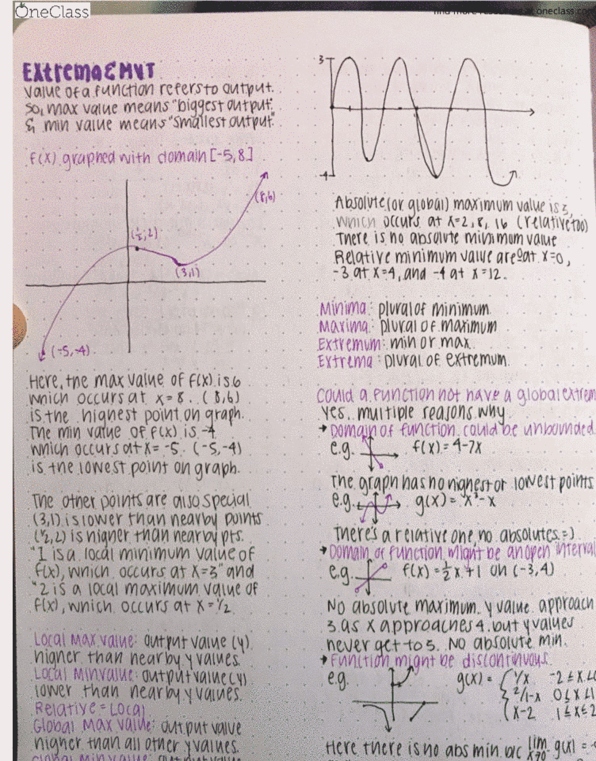 OneClass
Extrema & MVT
value of a function refers to output.
So, max value means "biggest output"
& min value means "smallest output"
f(x) graphed with domain [-5,8]
(8,6)
(½,2)
(3,1)
(-5,-4)
Here, the max value of f(x) is 6
which occurs at x=8. (8,6)
is the highest point on graph.
The min value of f(x) is -4
which occurs at x=-5. (-5,-4)
is the lowest point on graph.
The other points are also special
(3,1) is lower than nearby points
(½,2) is higher than nearby pts.
"1 is a local minimum value of
f(x), which occurs at x=3" and
"2 is a local maximum value of
f(x), which occurs at x=½
Local Max value: output value (y)
higher than nearby y values.
Local Min value: output value (y)
lower than nearby y values.
Relative = Local
Global Max value: output value
higher than all other y values.
Global Min value: output value
3
-4
Absolute (or global) maximum value is 3,
which occurs at x=2, 8, 16 (relative too)
There is no absolute minimum value
Relative minimum value are 0 at x=0,
-3 at x=4, and -4 at x=12.
Minima: plural of minimum
Maxima: plural of maximum
Extremum: min or max
Extrema: plural of extremum.
Could a function not have a global extrem
Yes, multiple reasons why.
→ Domain of function could be unbounded
e.g. f(x)=4-7x
The graph has no highest or lowest points
e.g. g(x)=x³-x
There's a relative one, no absolutes =)
→ Domain of function might be an open interval
e.g. f(x)=½x+1 on (-3,4)
No absolute maximum. y value approach
3 as x approaches 4, but y values
never get to 3. No absolute min.
→ Function might be discontinuous.
e.g. g(x) = { 1/x -2≤x<0
2/1-x 0≤x<1
x-2 1≤x≤2
Here there is no abs min. b/c lim g(x) = -